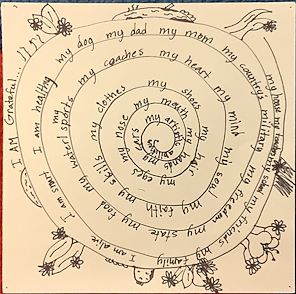 I AM Grateful...
my house my hometown my school
my country's military
my mom
my dad
my dog
I am healthy
I am smart
I am alive
my family
my friends
my freedom
my soul
my mind
my heart
my coaches
my water sports
my food
my state
my faith
my hair
my shoes
my clothes
my skills
my eyes
my hands
my mouth
my nose
my ears
my artistic abilities